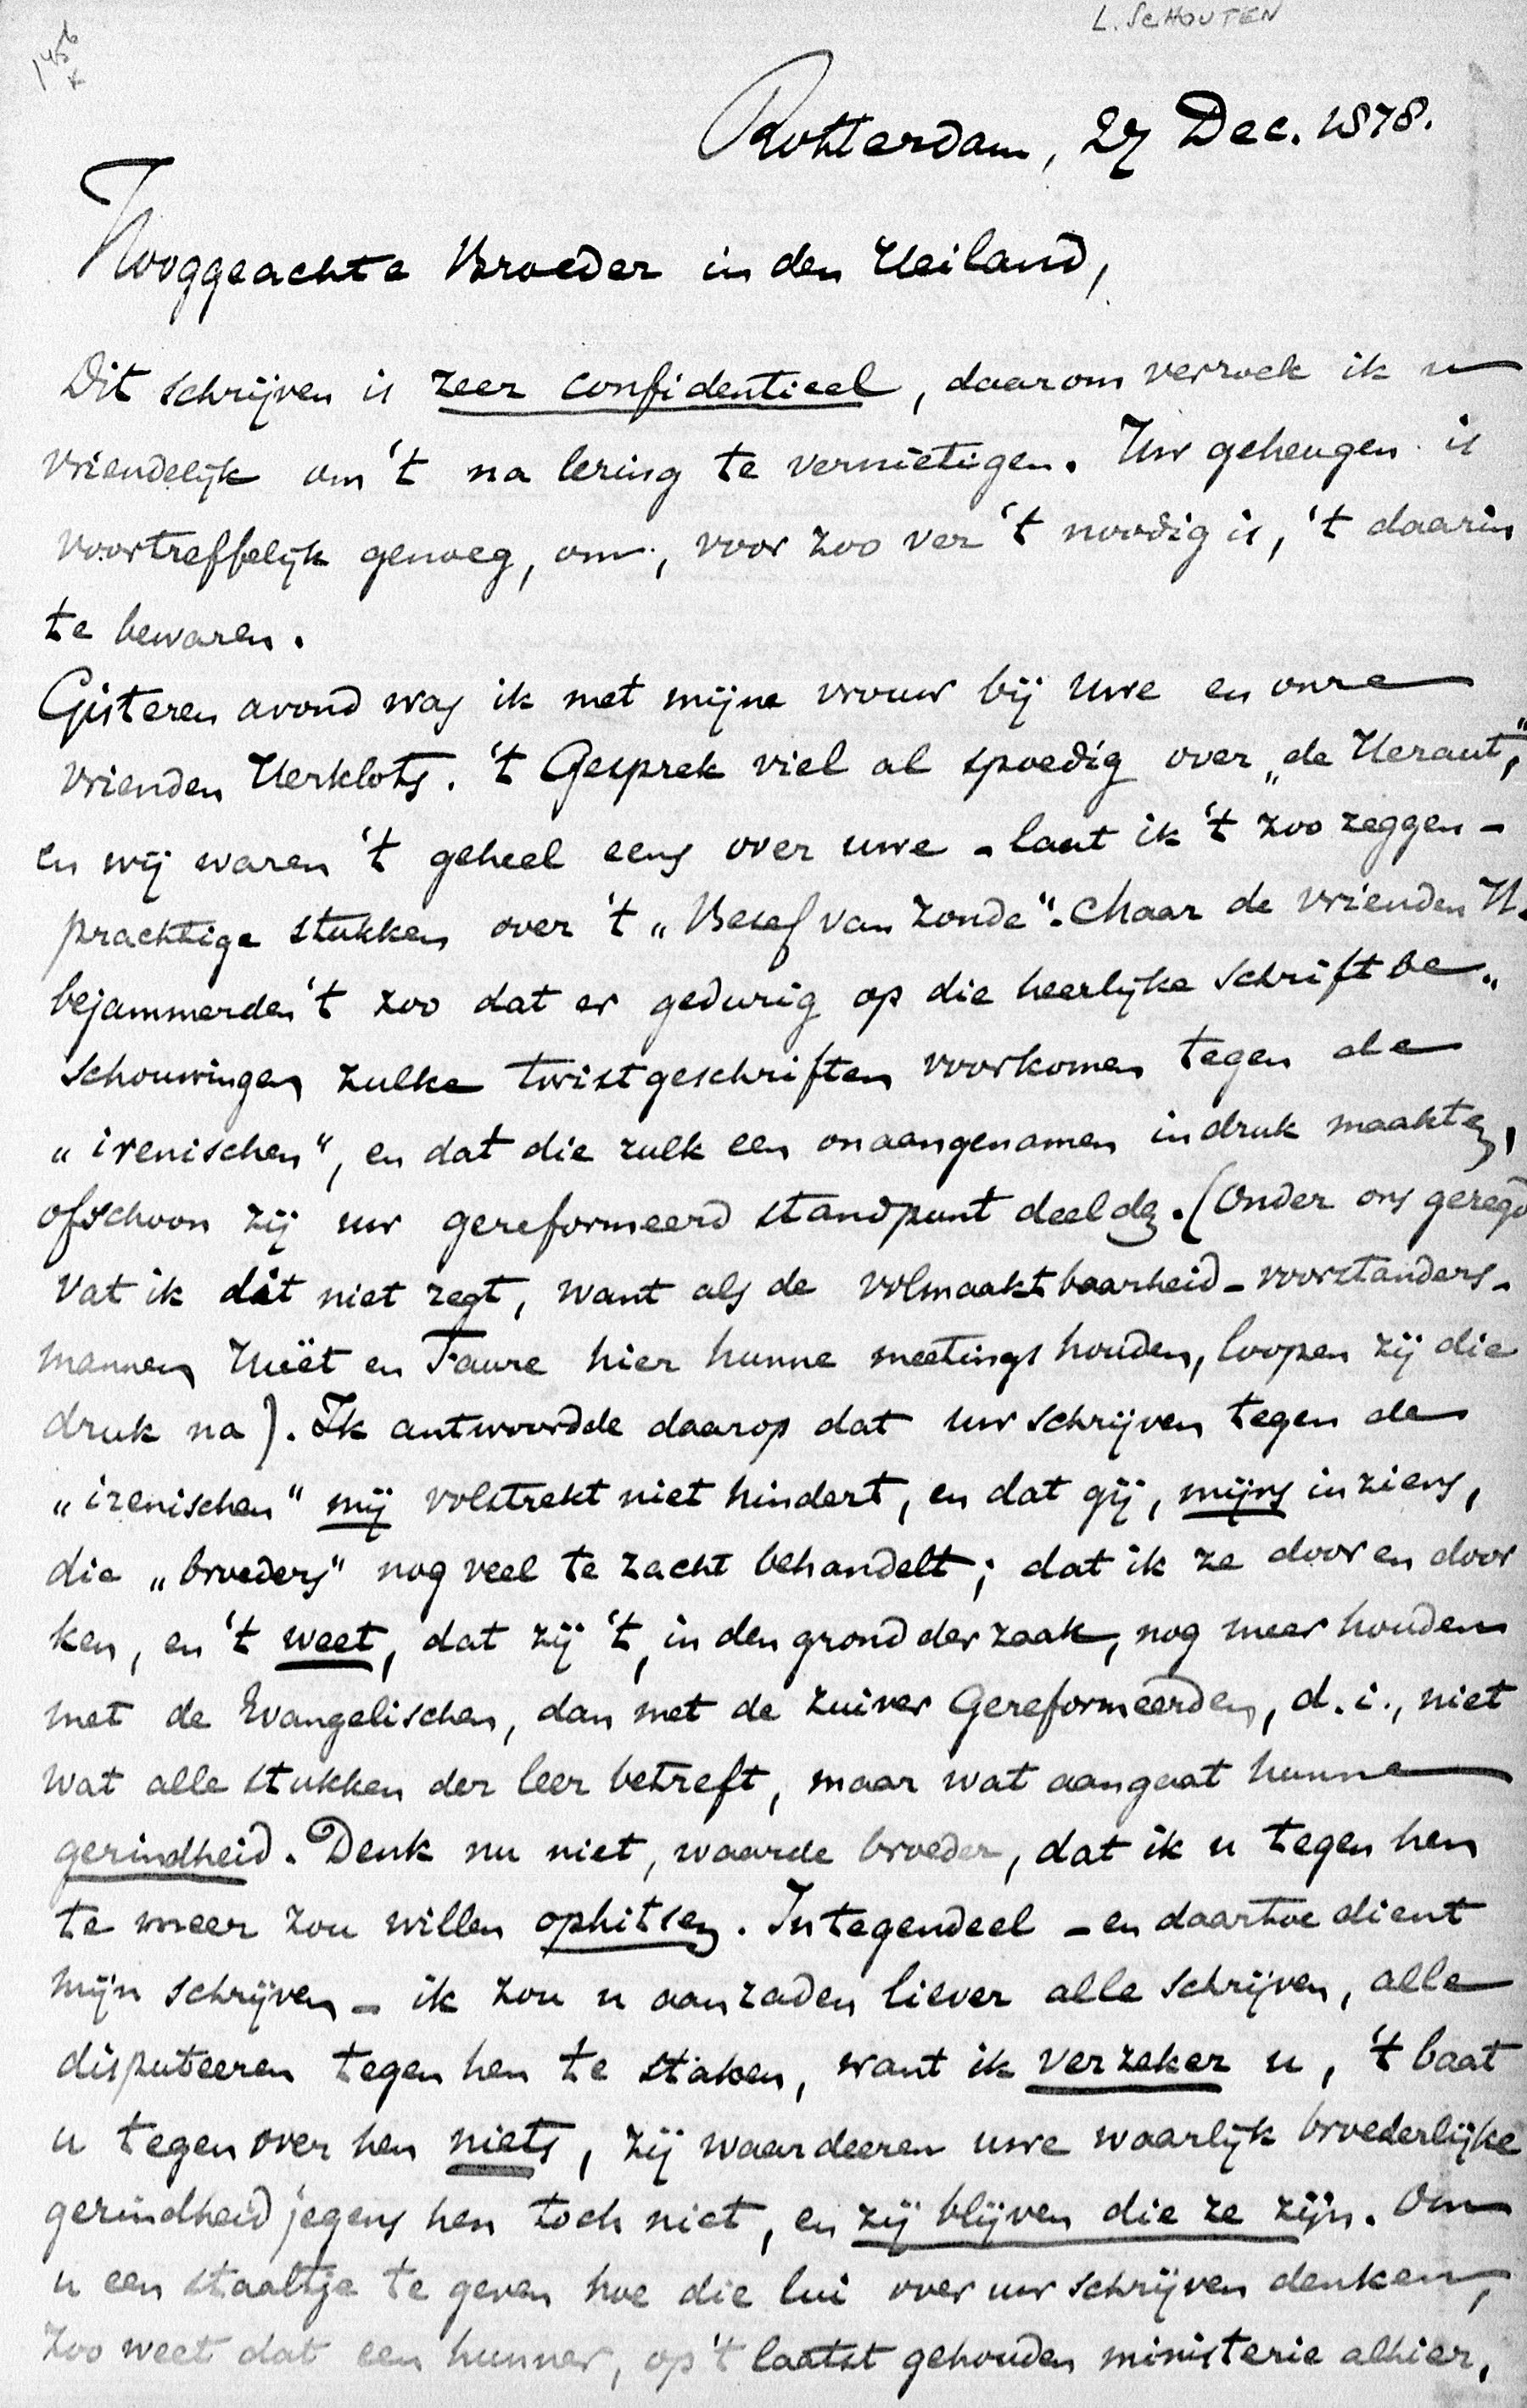 L. SCHOUTEN
Rotterdam, 27 Dec. 1878.
Hooggeachte Broeder in den Heiland,
Dit schrijven is zeer confidentieel, daarom verzoek ik u
vriendelijk om 't na lezing te vernietigen. Uw geheugen is
voortreffelijk genoeg, om, voor zoo ver 't noodig is, 't daarin
te bewaren.
Gisteren avond was ik met mijne vrouw bij uwe en onze
vrienden Herklots. 't Gesprek viel al spoedig over „de Heraut,"
en wij waren 't geheel eens over uwe - laat ik 't zoo zeggen -
prachtige stukken over 't „Besef van zonde". Maar de vrienden H.
bejammerden 't zoo dat er gedurig op die heerlijke schriftbe-
schouwingen zulke twistgeschriften voorkomen tegen de
„irenischen", en dat die zulk een onaangenamen indruk maakten,
ofschoon zij uw gereformeerd standpunt deelden. (Onder ons gezegd
vat ik dát niet regt, want als de volmaaktbaarheid-voorstanders-
mannen Huët en Faure hier hunne meetings houden, loopen zij die
druk na). Ik antwoordde daarop dat uw schrijven tegen de
„irenischen" mij volstrekt niet hindert, en dat gij, mijns inziens,
die „broeders" nog veel te zacht behandelt; dat ik ze door en door
ken, en 't weet, dat zij 't, in den grond der zaak, nog meer houden
met de Evangelischen, dan met de zuiver Gereformeerden, d.i., niet
wat alle stukken der leer betreft, maar wat aangaat hunne
gezindheid. Denk nu niet, waarde broeder, dat ik u tegen hen
te meer zou willen ophitsen. Integendeel - en daartoe dient
mijn schrijven - ik zou u aanraden liever alle schrijven, alle
disputeeren tegen hen te staken, want ik verzeker u, 't baat
u tegenover hen niets, zij waardeeren uwe waarlijk broederlijke
gezindheid jegens hen toch niet, en zij blijven die ze zijn. Om
u een staaltje te geven hoe die lui over uw schrijven denken,
zoo weet dat een hunner, op 't laatst gehouden ministerie alhier,